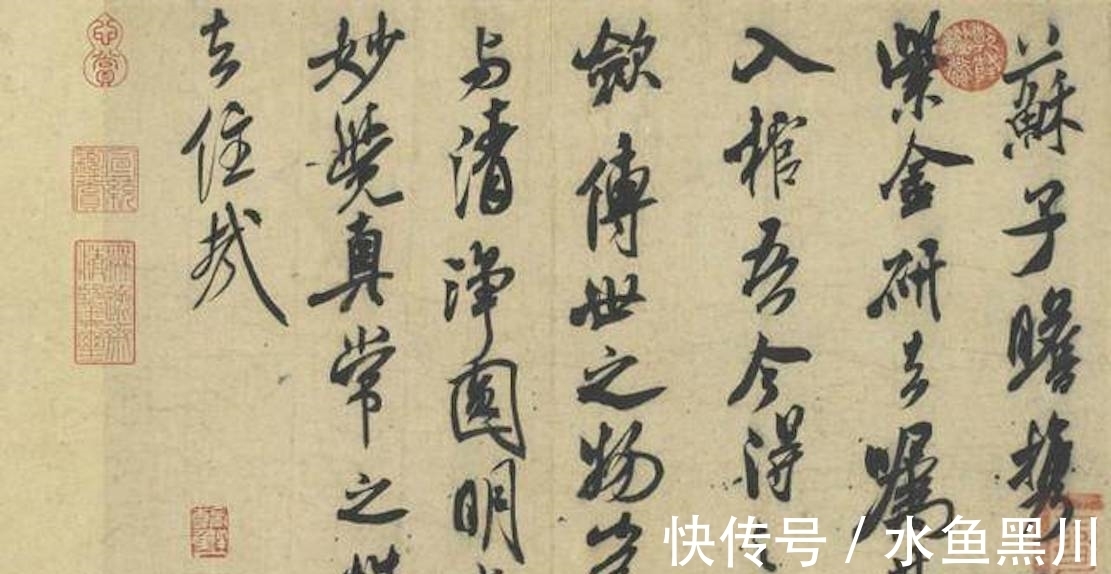 蘇子瞻携
紫金研去嘱
入棺吾今得
歛傳世之物
与清淨圓明
妙覺真常之
去住哉
心賞
快传号 / 水鱼黑川